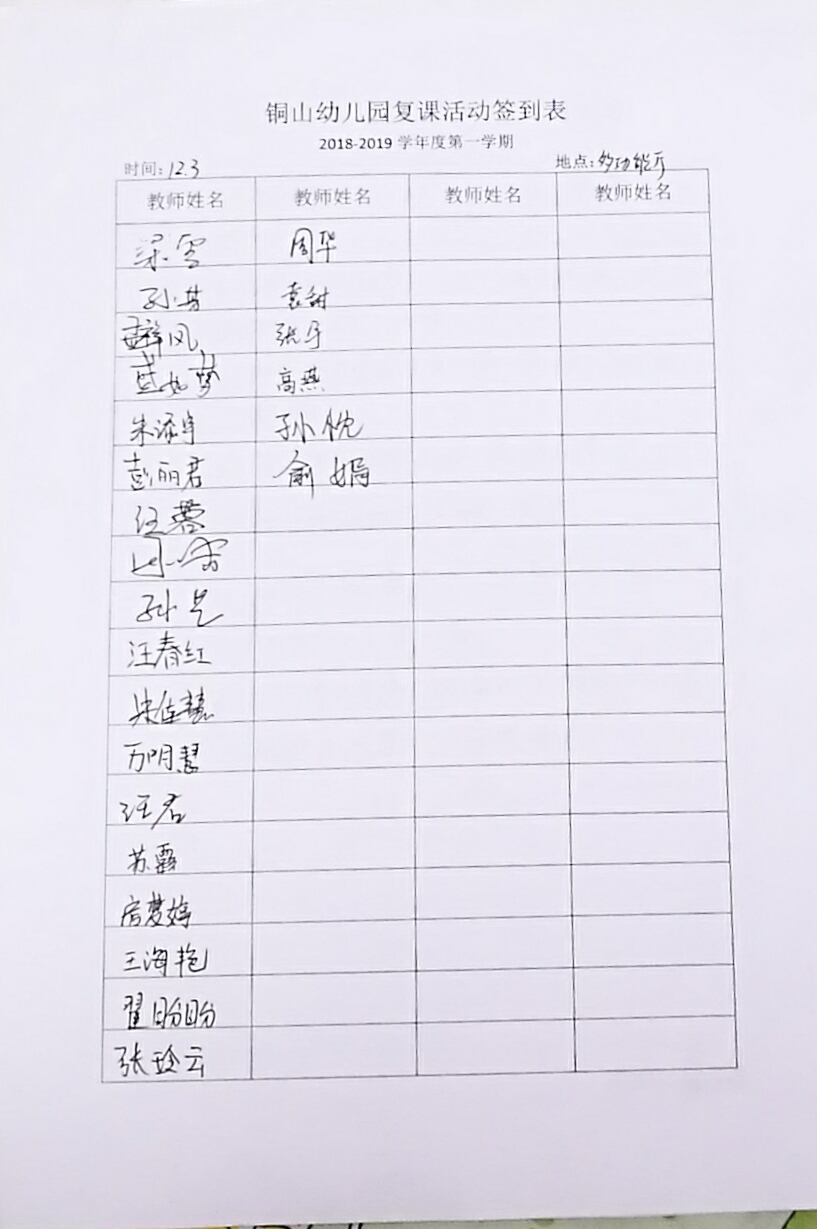 铜山幼儿园复课活动签到表
2018-2019 学年度第一学期
时间: 12.3 地点: 多功能厅
教师姓名 教师姓名 教师姓名 教师姓名
梁雪 周华
孙苗 袁甜
风
孟如梦 高燕
朱添宇 孙忱
彭丽君 俞娟
汪蓉
周雪
孙艺
汪春红
朱佳慧
万明慧
汪君
苏露
房梦婷
王海艳
翟盼盼
张玲云